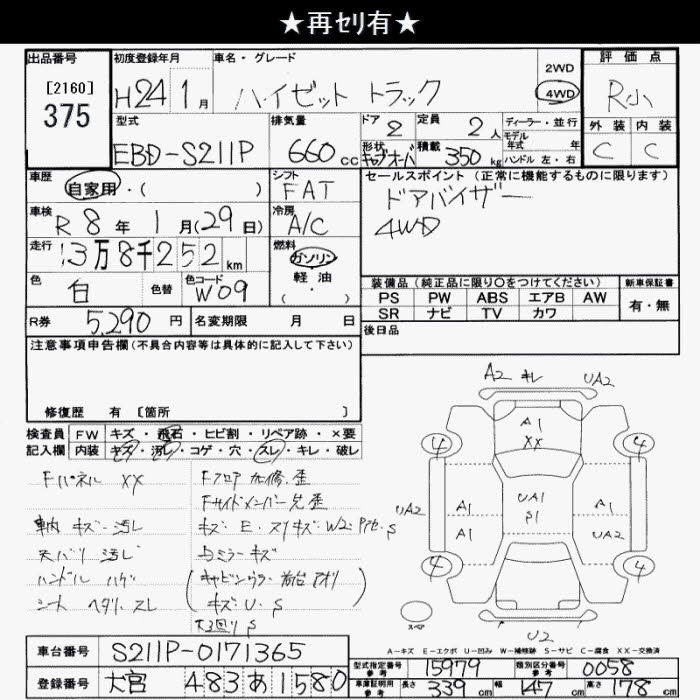 ★再セリ有★
出品番号
[2160]
375
初度登録年月
H24 1月
車名・グレード
ハイゼット トラック
2WD
4WD
評価点
R小
外装 内装
C C
型式
EBD-S211P
排気量
660cc
ドア
2
定員
2人
形状
キャブオーバ
積載
350kg
ディーラー・並行
モデル
年式 年
ハンドル 左・右
車歴
自家用・( )
シフト
FAT
セールスポイント (正常に機能するものに限ります)
ドアバイザー
4WD
車検
R8年 1月(29日)
冷房
A/C
走行
3万8千252km
燃料
ガソリン
軽油
( ・ )
色
白
色替
色コード
W09
装備品 (純正品に限り○をつけてください)
PS PW ABS エアB AW
SR ナビ TV カワ
新車保証書
有・無
R券
5,290円
名変期限 月 日
後日品
注意事項申告欄(不具合内容等は具体的に記入して下さい)
修復歴 有 [箇所 ]
検査員
記入欄
FW キズ・飛石・ヒビ割・リペア跡・×要
内装 キズ・汚レ・コゲ・穴・スレ・キレ・破レ
Fパネル XX
車内 キズ・汚レ
天バリ 汚レ
ハンドル ハゲ
シート ヘタリ・スレ
Fフロア 加修・歪
Fサイドメンバー先 歪
キズ・E・スリキズ・W2・
ミラーキズ
キズ・U・S
下回りS
A2 キレ UA2
A1
XX
4 4
UA2 A1 UA1 A1
A1 S1 UA2 UA2
4 4
スペア
U2
A-キズ E-エクボ U-凹み W-補修跡 S-サビ C-腐食 XX-交換済
車台番号
S211P-0171365
登録番号
大宮 483 あ 1580
型式指定番号
参考
15979
類別区分番号
参考
0058
車庫証明用
参考
長さ 339cm 幅 147cm 高さ 178cm